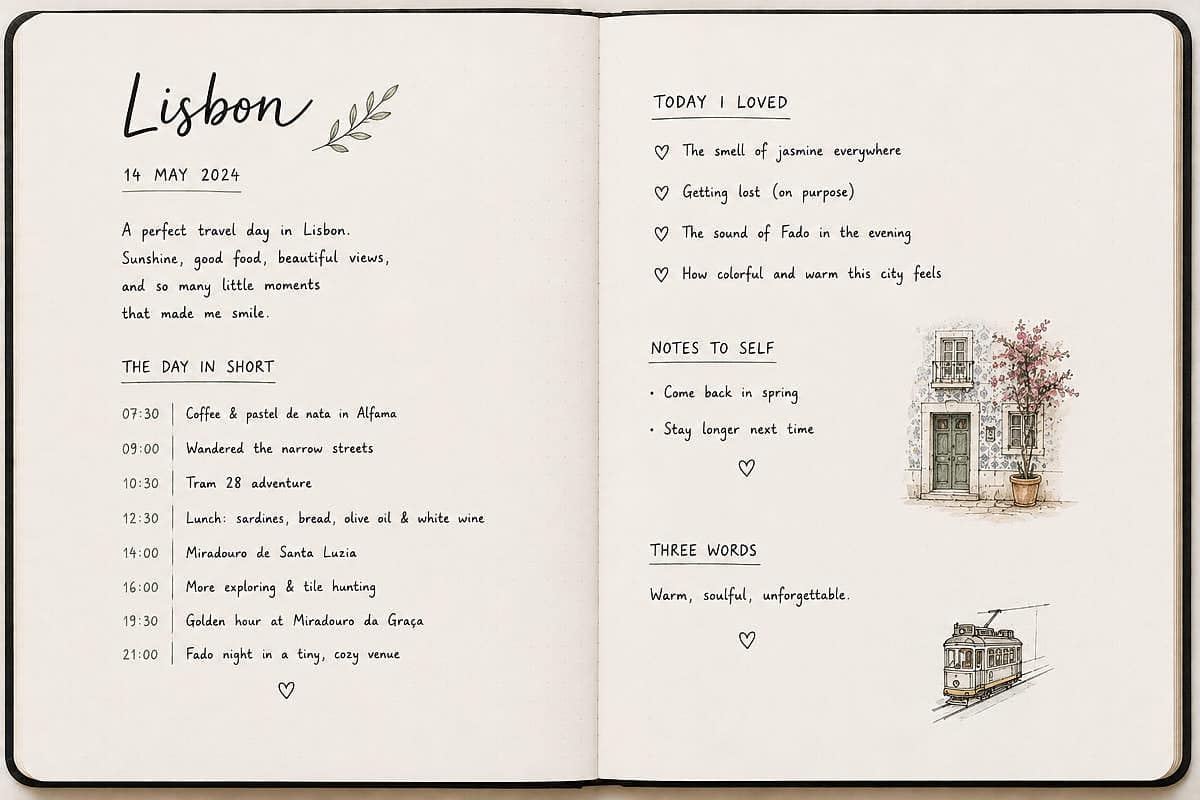 Lisbon
14 MAY 2024
A perfect travel day in Lisbon.
Sunshine, good food, beautiful views,
and so many little moments
that made me smile.
THE DAY IN SHORT
07:30 Coffee & pastel de nata in Alfama
09:00 Wandered the narrow streets
10:30 Tram 28 adventure
12:30 Lunch: sardines, bread, olive oil & white wine
14:00 Miradouro de Santa Luzia
16:00 More exploring & tile hunting
19:30 Golden hour at Miradouro da Graça
21:00 Fado night in a tiny, cozy venue
TODAY I LOVED
The smell of jasmine everywhere
Getting lost (on purpose)
The sound of Fado in the evening
How colorful and warm this city feels
NOTES TO SELF
• Come back in spring
• Stay longer next time
THREE WORDS
Warm, soulful, unforgettable.